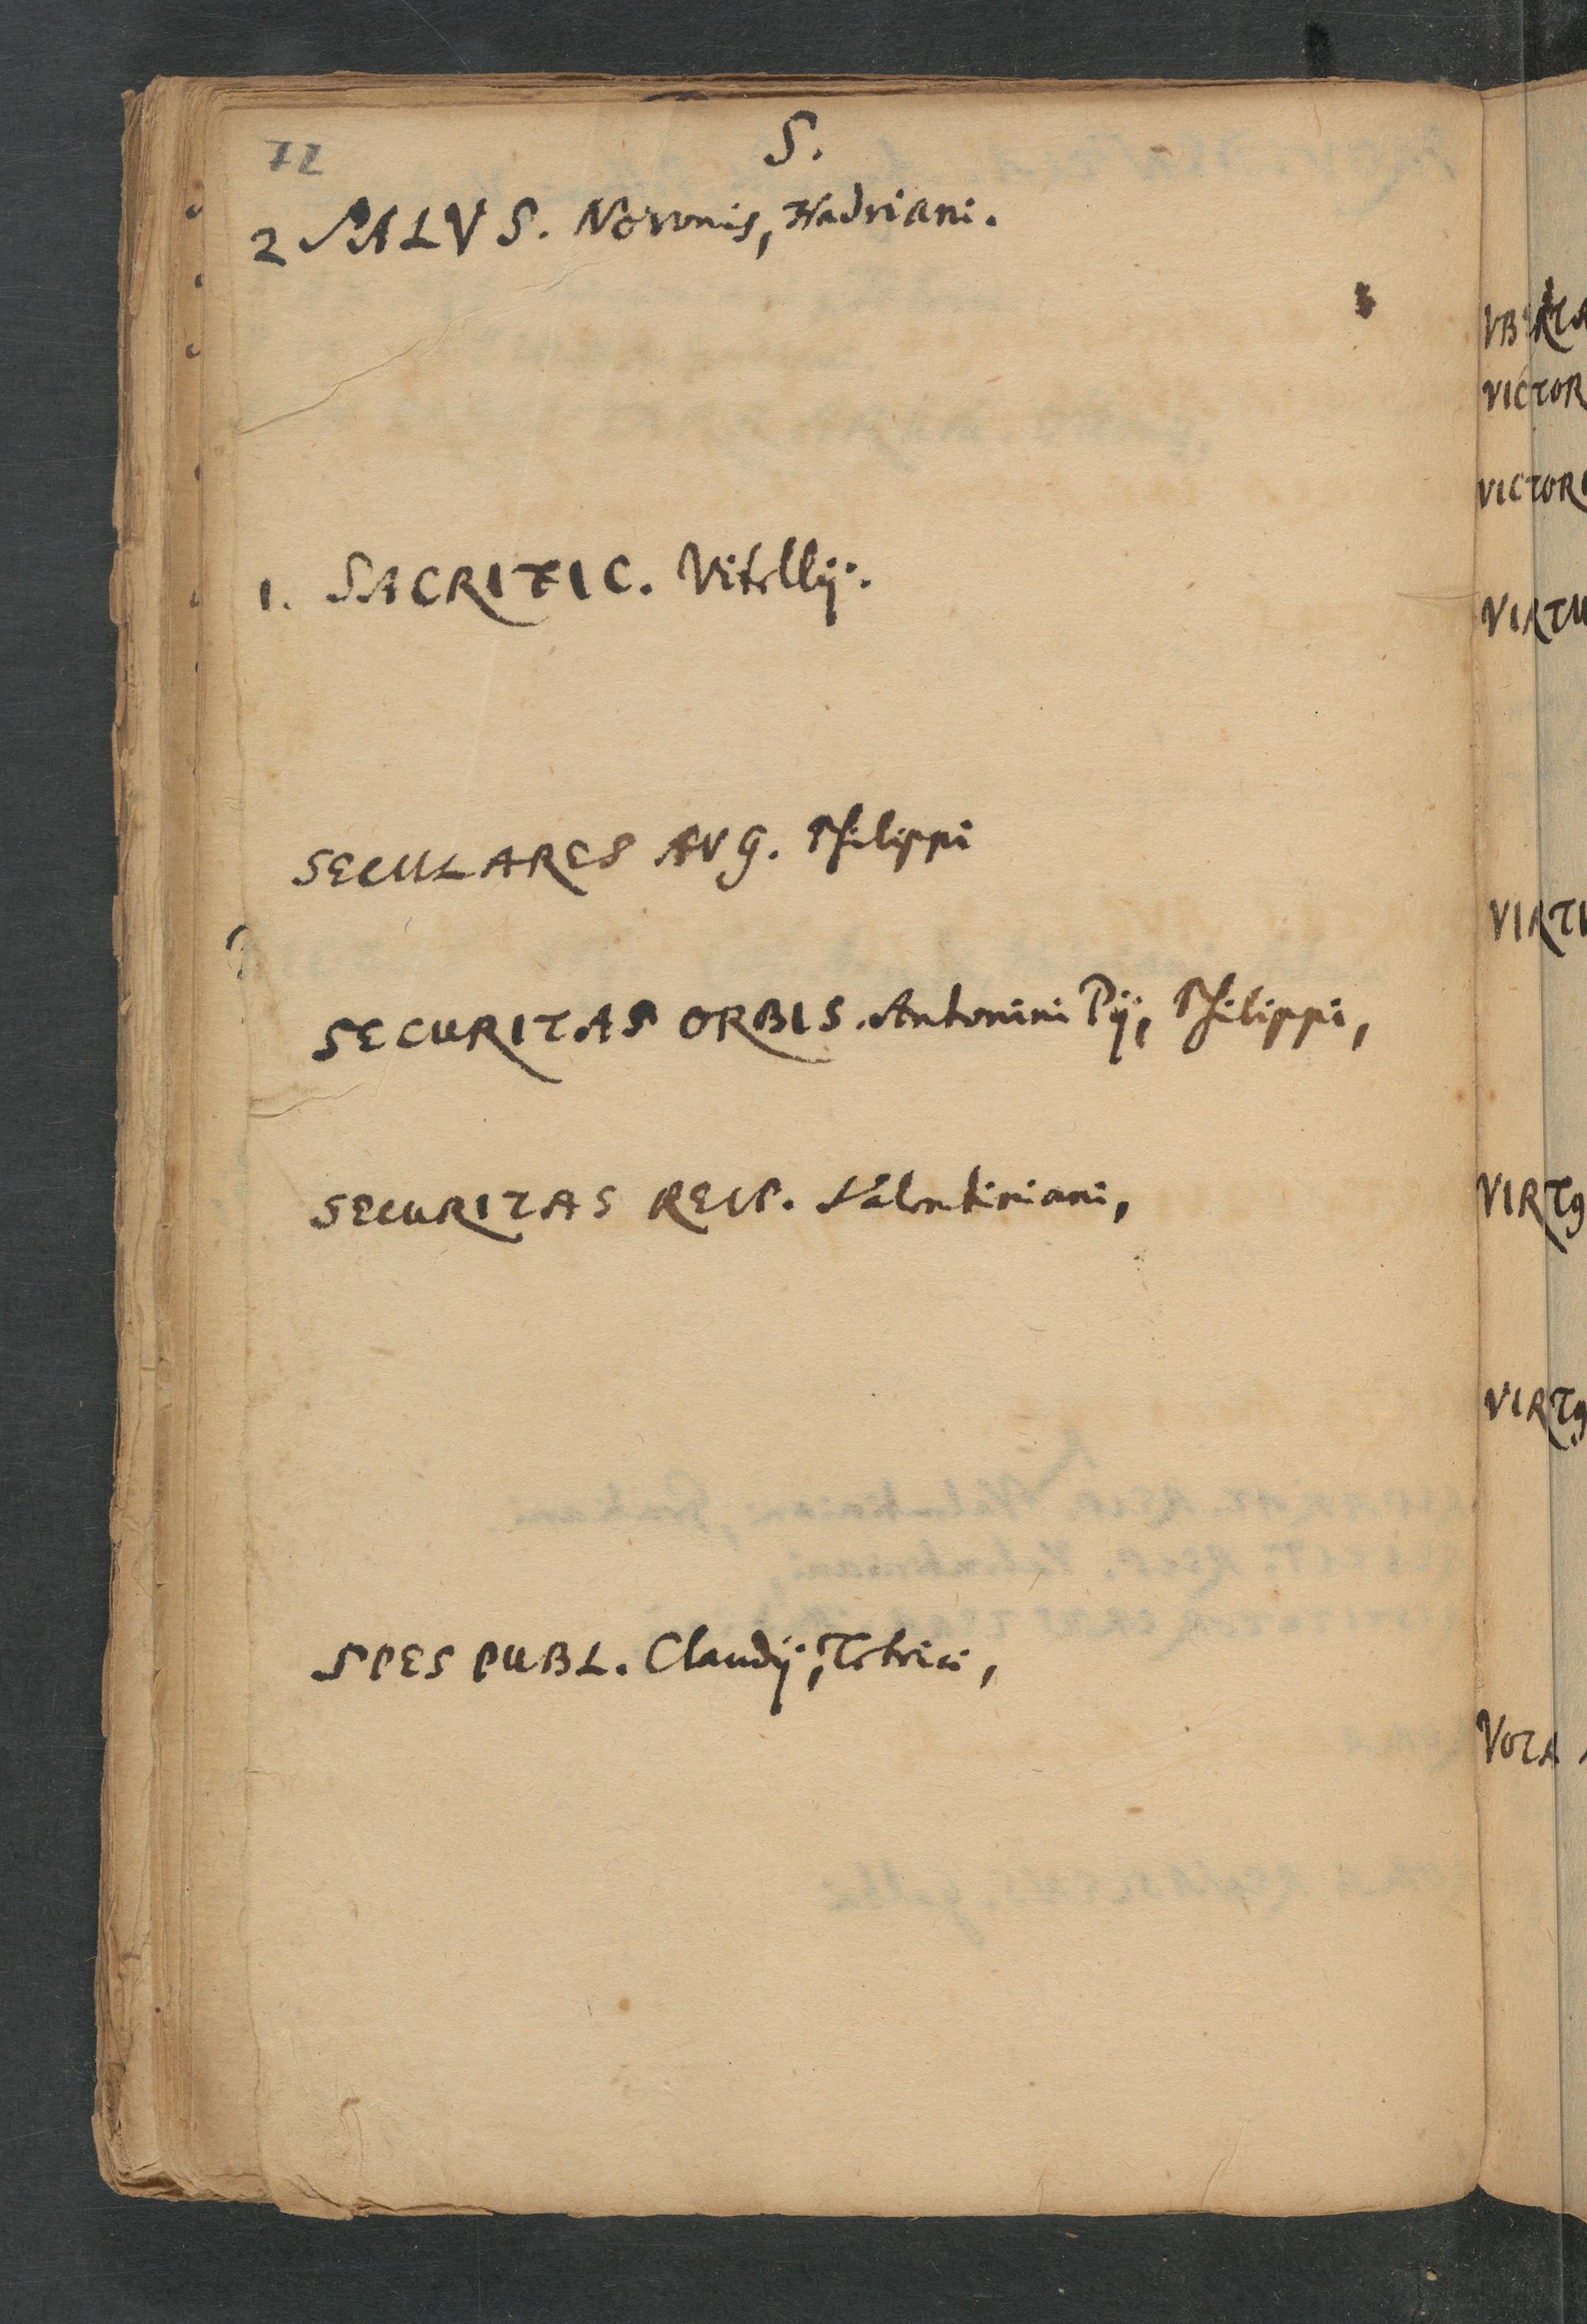 72
S.
2 SALVS. Neronis, Hadriani.
1. SACRITIC. Vitellij.
SECULARES AVG. Philippi
SECURITAS ORBIS. Antonini Pij, Philippi,
SECURITAS REIP. Valentiniani,
SPES PUBL. Claudij, Tetrici,
VICTOR
VICTORI
VIRTU
VIRTV
VIRT9
VIRT9
VOTA